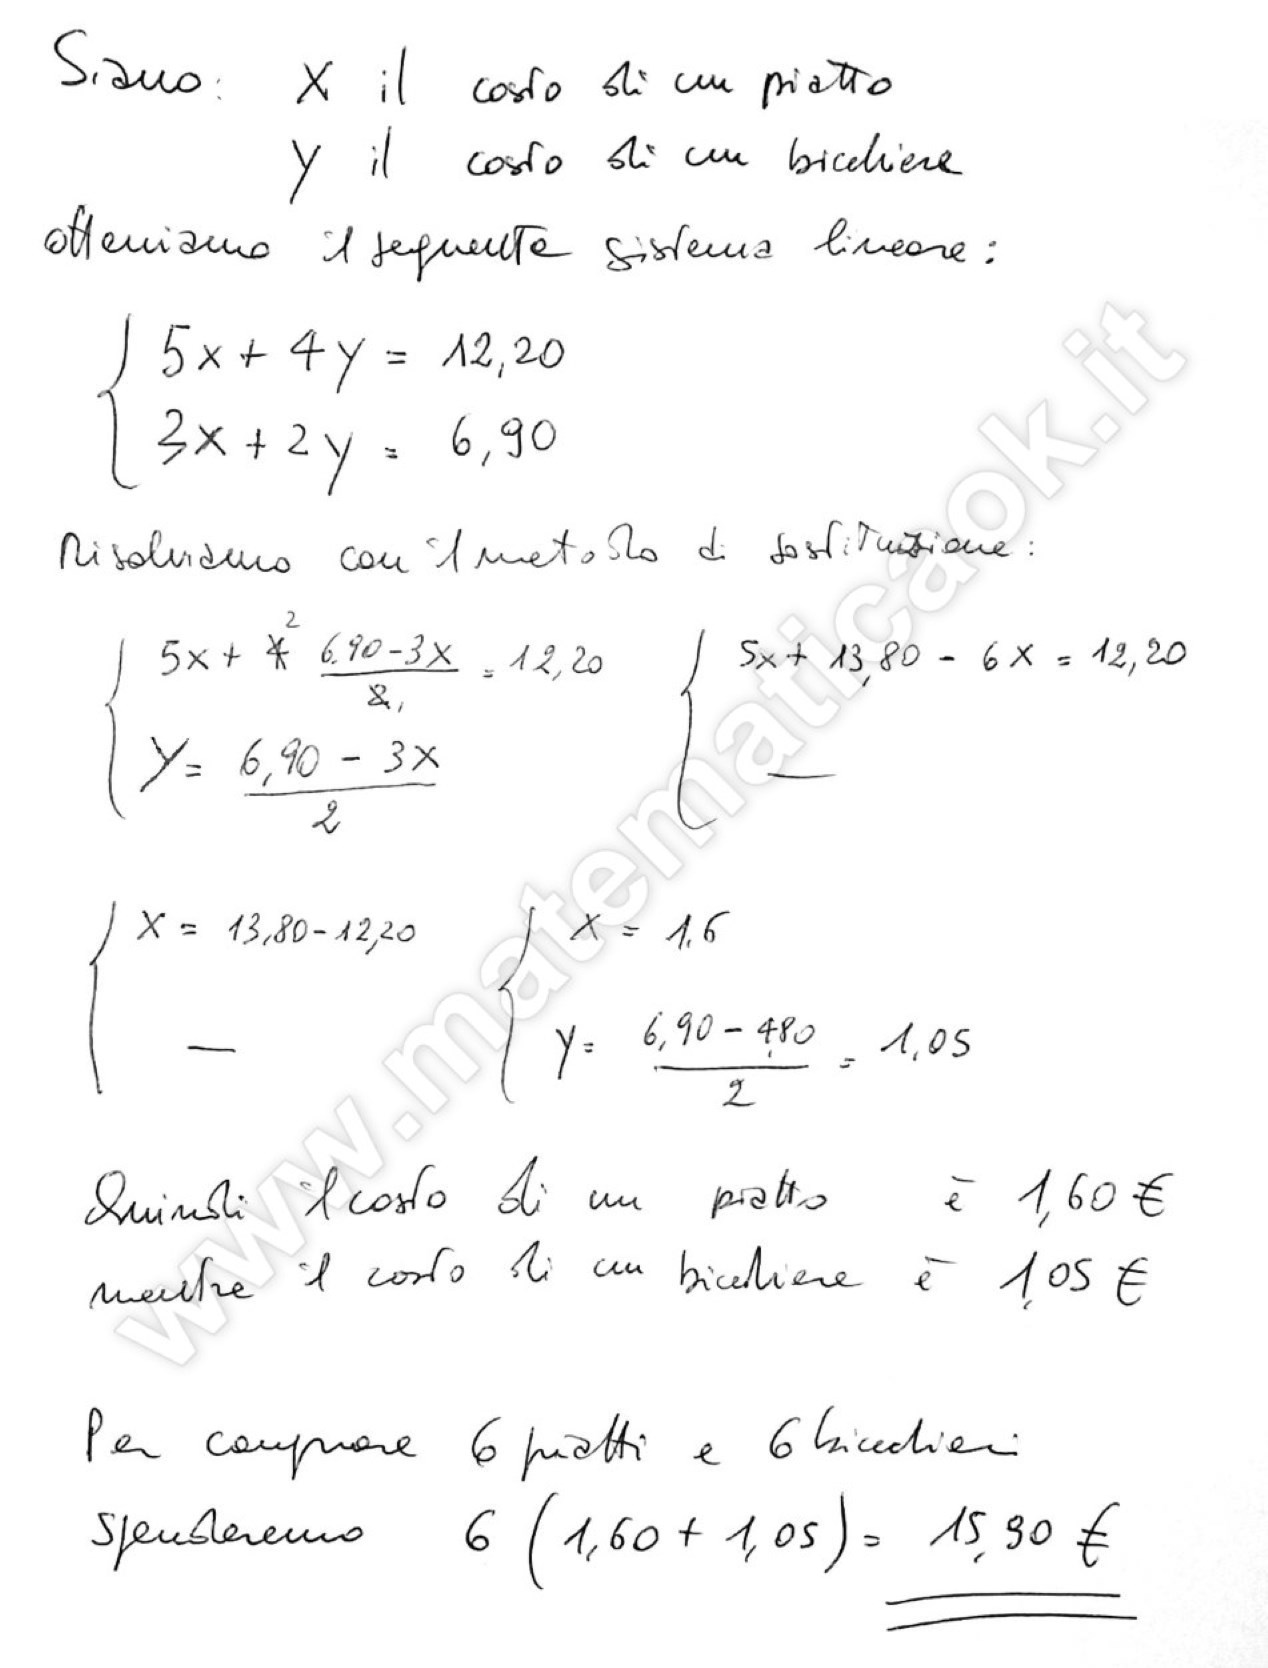 Siano: x il costo di un piatto
y il costo di un bicchiere
otteniamo il seguente sistema lineare:
5x + 4y = 12,20
3x + 2y = 6,90
Risolviamo con il metodo di sostituzione:
5x + 4 2 (6,90 - 3x)/2 1 = 12,20
y = (6,90 - 3x)/2
5x + 13,80 - 6x = 12,20
—
x = 13,80 - 12,20
—
x = 1,6
y = (6,90 - 4,80)/2 = 1,05
Quindi il costo di un piatto è 1,60 €
mentre il costo di un bicchiere è 1,05 €
Per comprare 6 piatti e 6 bicchieri
spenderemo 6 (1,60 + 1,05) = 15,90 €
www.matematicaok.it